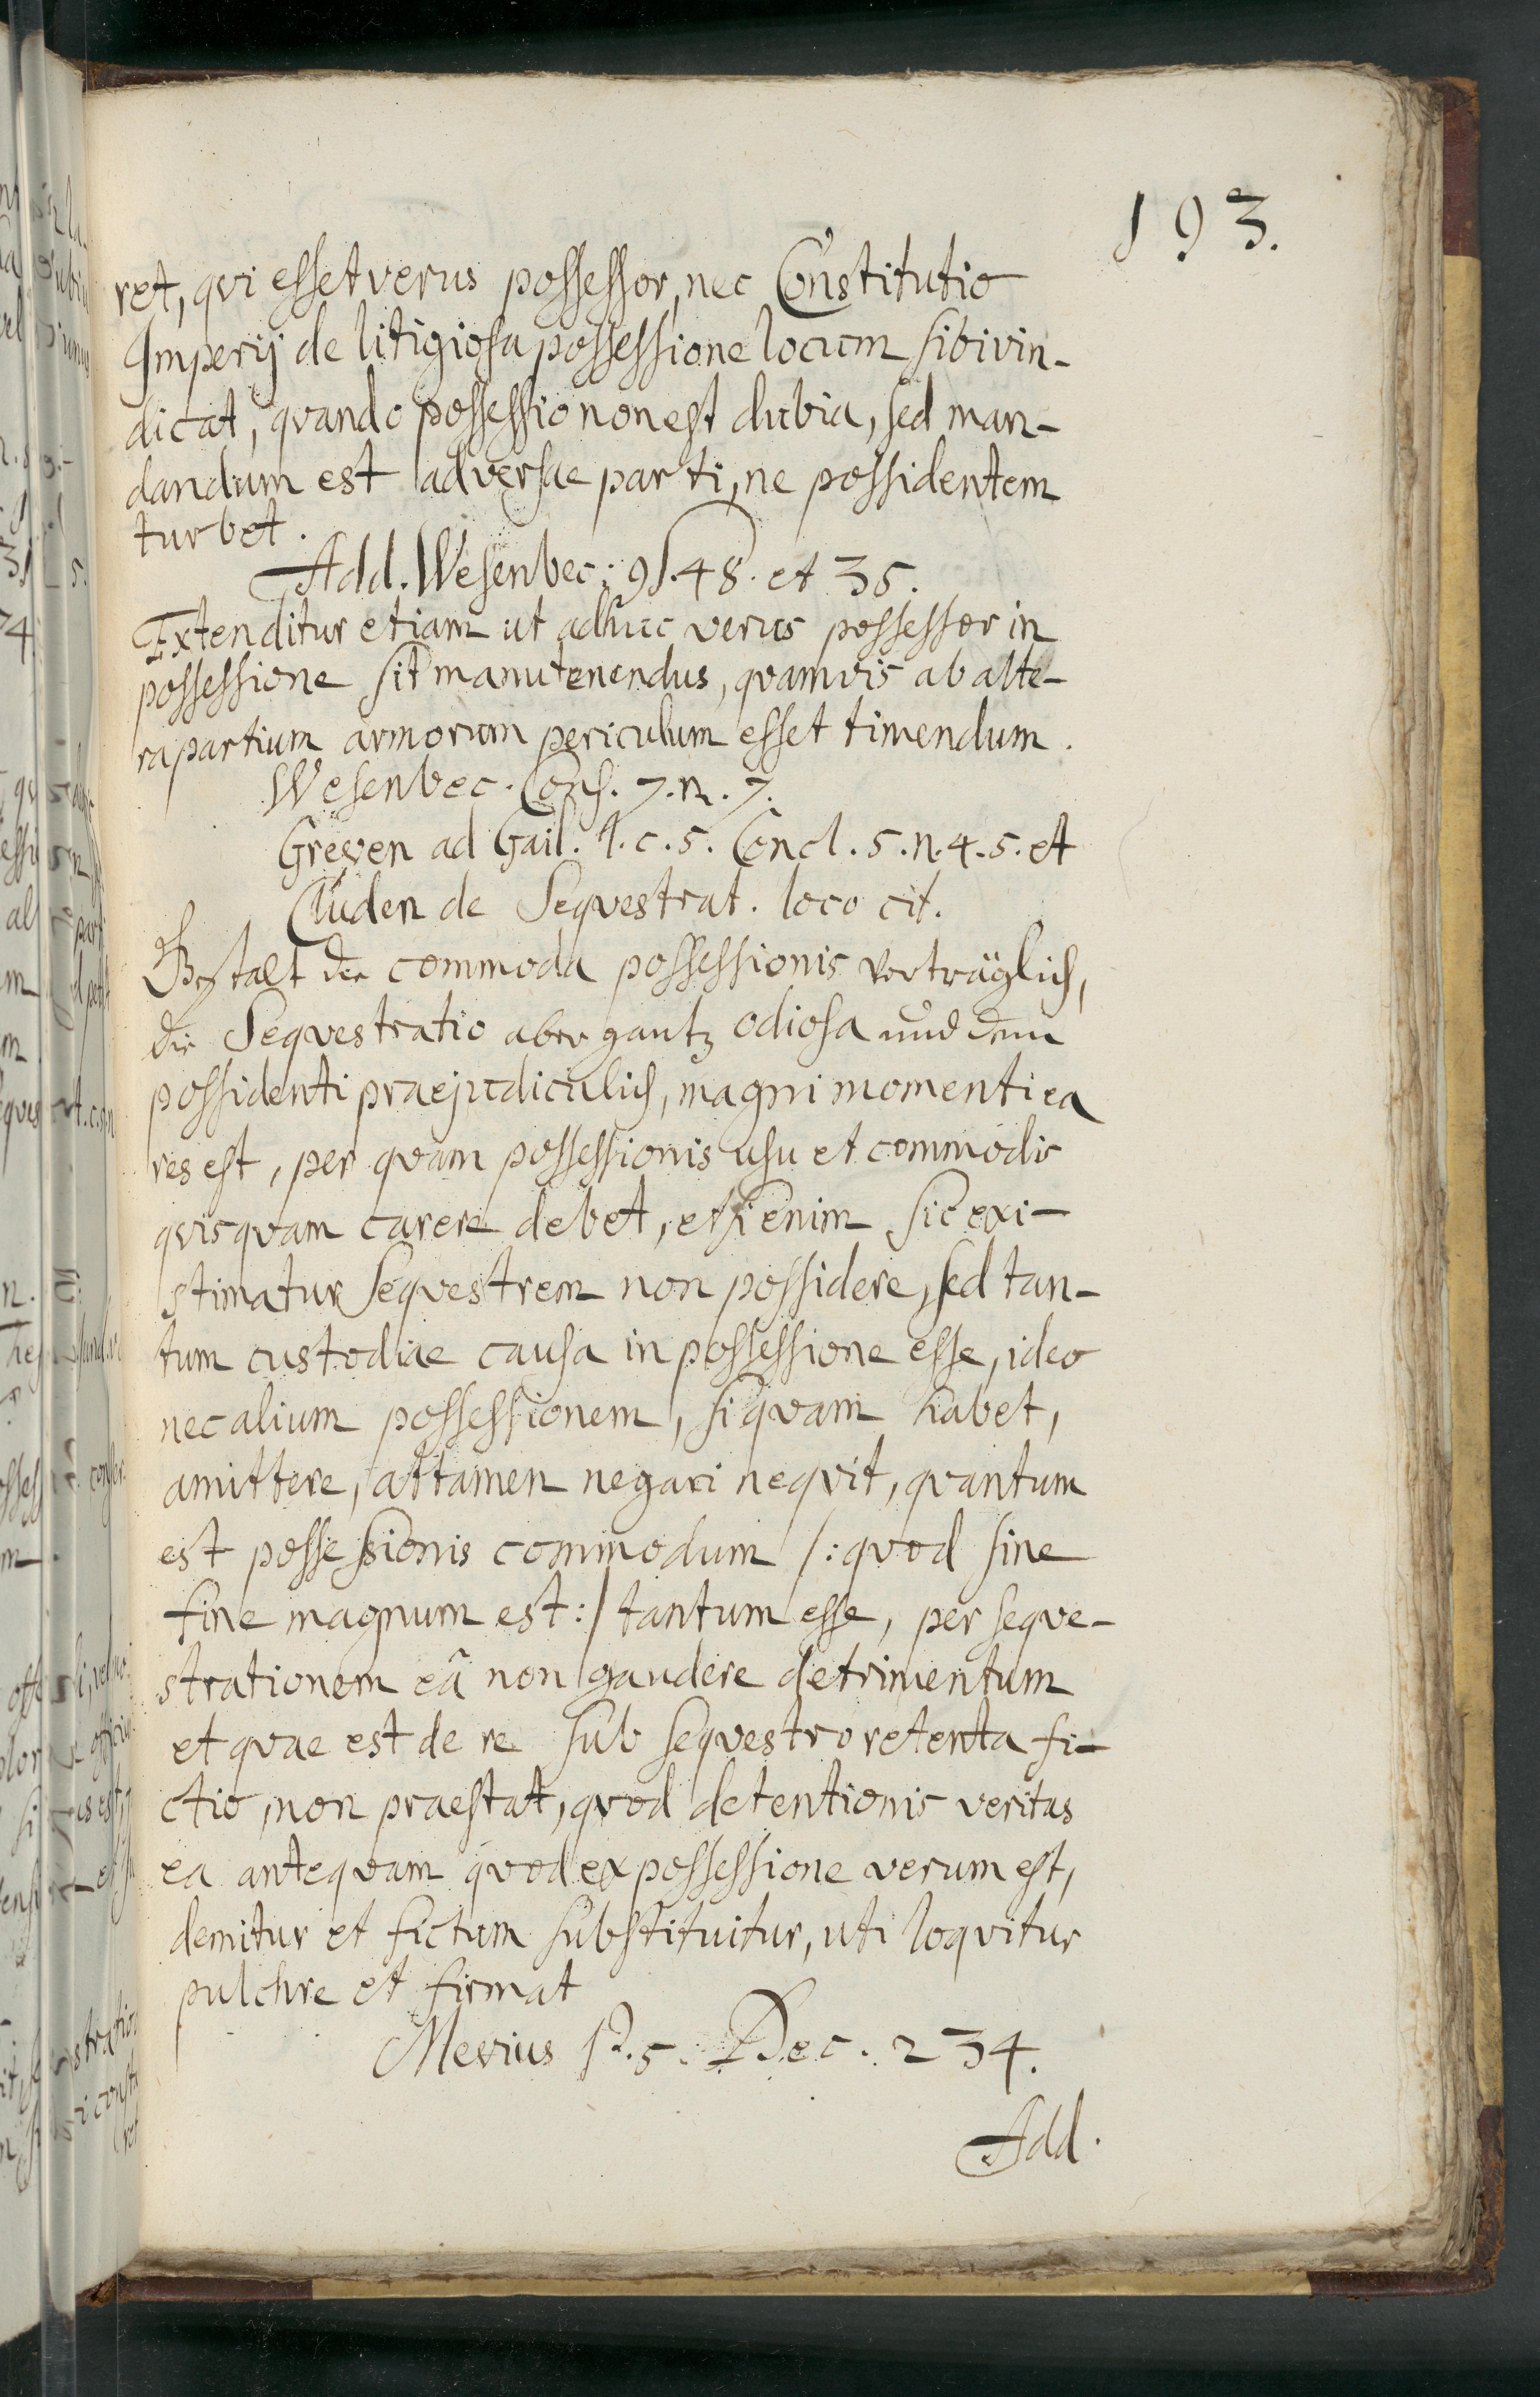 193.
ret, qvi esset verus possessor, nec Constitutio
Imperij de litigiosa possessione locum sibi vin-
dicat, qvando possessio non est dubia, sed man-
dandum est adversae parti, ne possidentem
turbet.
Add. Wesenbec: 48. et 35.
Extenditur etiam ut adhuc verus possessor in
possessione sit manutenendus, qvamvis ab alte-
ra partium armorum periculum esset timendum.
Wesenbec. Cons. 7. n. 7.
Greven ad Gail. 1. c. 5. Concl. 5. n. 4. 5. et
Cluden de Seqvestrat. loco cit.
Gestalt der commoda possessionis verträglich,
die Seqvestratio aber gantz odiosa und dem
possidenti praejudiculich, magni momenti ea
res est, per qvam possessionis usu et commodis
qvisqvam carere debet, etsi enim sic exi-
stimatur Seqvestrem non possidere, sed tan-
tum custodiae causa in possessione esse, ideo
nec alium possessionem, si qvam habet,
amittere, attamen negari neqvit, qvantum
est possessionis commodum /: qvod sine
fine magnum est :/ tantum esse, per seqve-
strationem eâ non gaudere detrimentum
et qvae est de re sub seqvestro retenta fi-
ctio, non praestat, qvod detentionis veritas
ea anteqvam qvod ex possessione verum est,
demitur et fictum substituitur, uti loqvitur
pulchre et firmat
Mevius P. 5. Dec. 234.
Add.